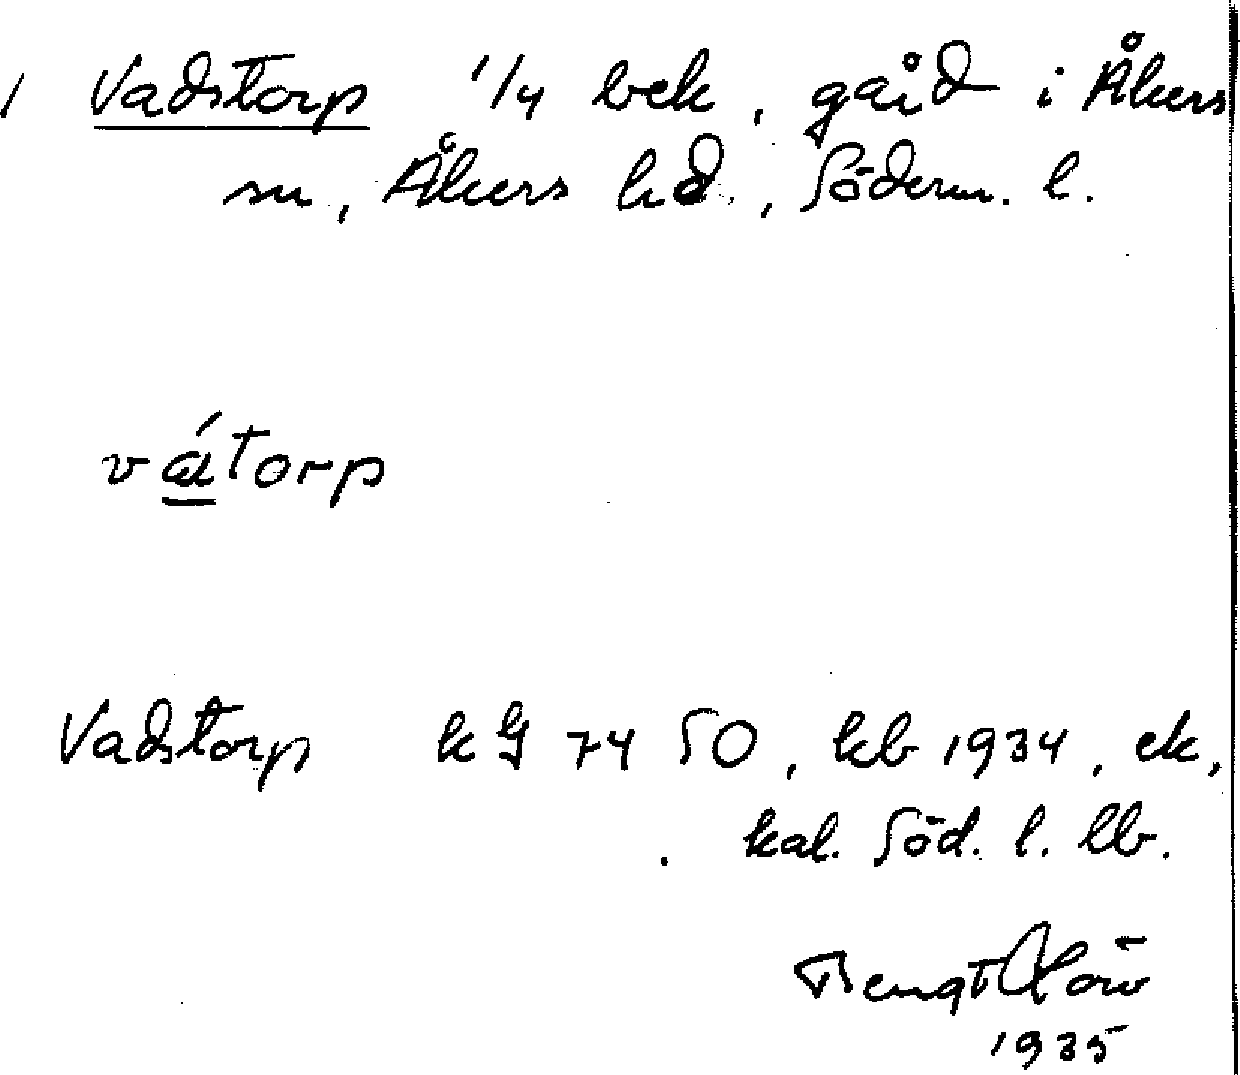 / Vadstorp 1/4 bek, gård i Åkers
sn, Åkers hd., Söderm. l.
vátorp
Vadstorp k G 74 SO, kb 1934, ek,
kal. Söd. l. lb.
Bengt
1935